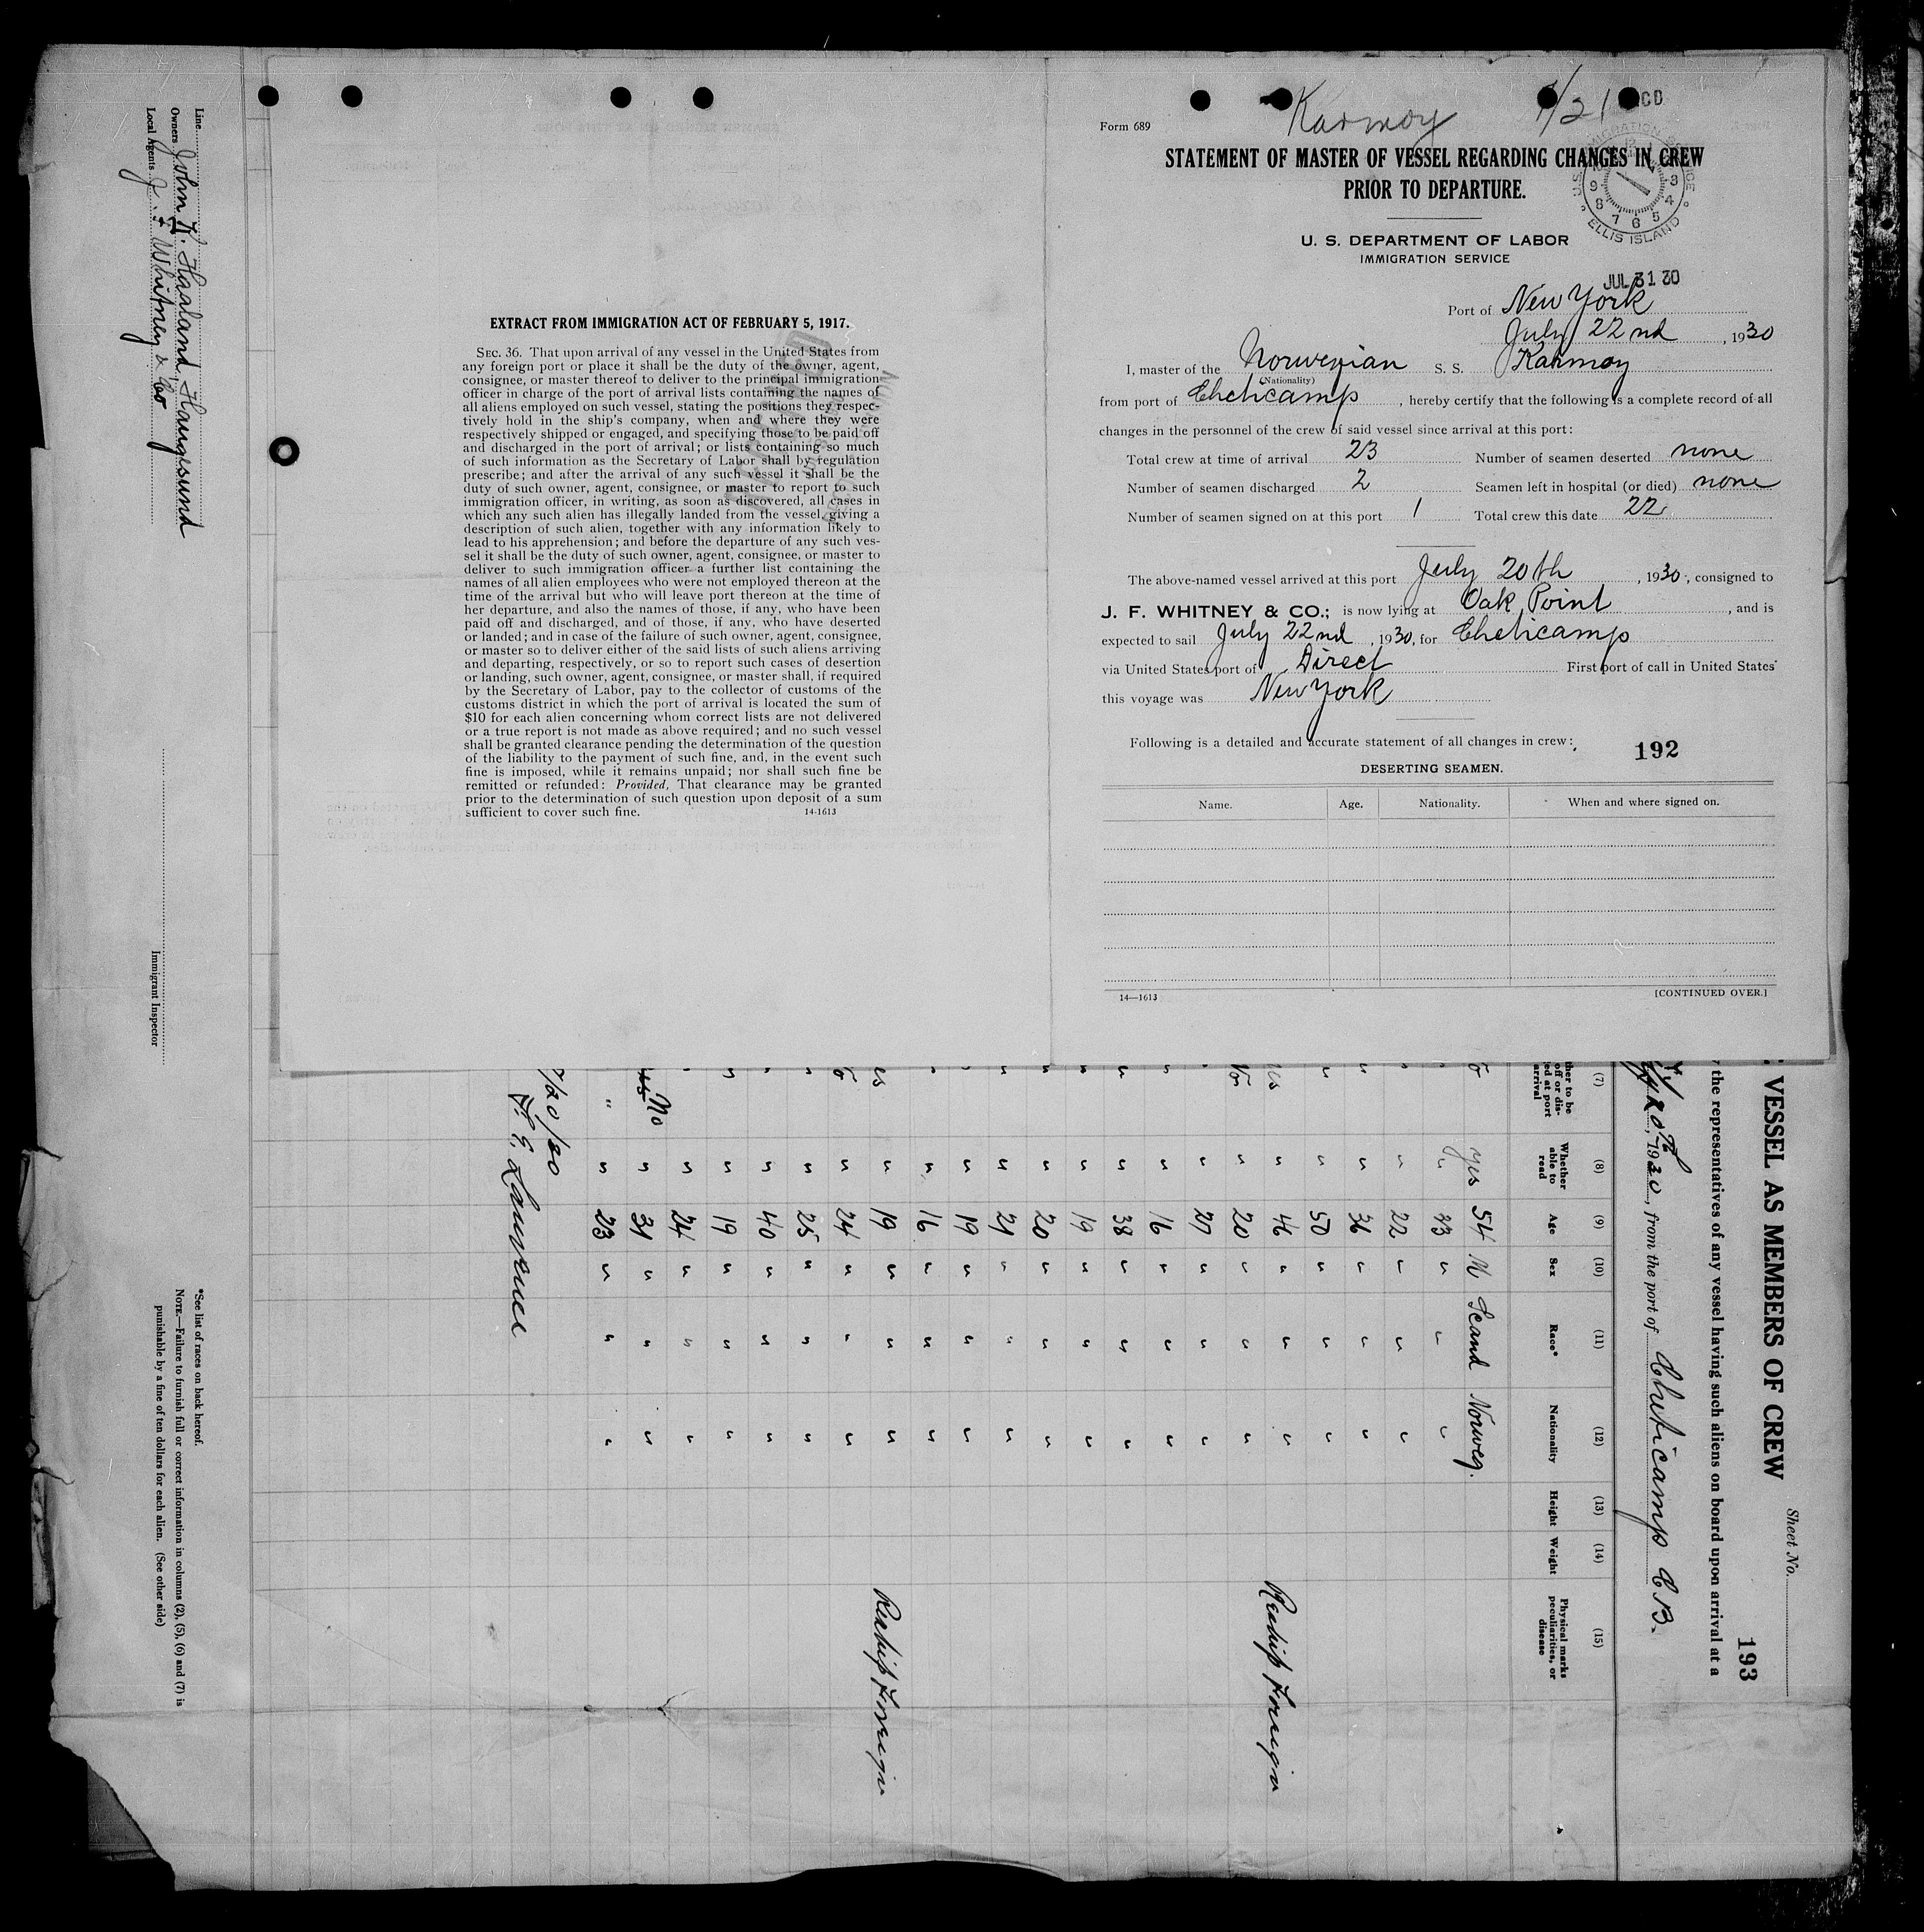 Karmoy 7/21
RCD
Form 689
STATEMENT OF MASTER OF VESSEL REGARDING CHANGES IN CREW
PRIOR TO DEPARTURE.
U. S. DEPARTMENT OF LABOR
IMMIGRATION SERVICE
ELLIS ISLAND
JUL 31 30
Port of New York
July 22nd, 1930
I, master of the Norwegian S. S. Karmoy
(Nationality)
from port of Cheticamp, hereby certify that the following is a complete record of all
changes in the personnel of the crew of said vessel since arrival at this port:
Total crew at time of arrival 23 Number of seamen deserted none
Number of seamen discharged 2 Seamen left in hospital (or died) none
Number of seamen signed on at this port 1 Total crew this date 22
The above-named vessel arrived at this port July 20th, 1930, consigned to
J. F. WHITNEY & CO.; is now lying at Oak Point, and is
expected to sail July 22nd, 1930, for Cheticamp
via United States port of Direct First port of call in United States
this voyage was New York
Following is a detailed and accurate statement of all changes in crew:
192
DESERTING SEAMEN.
Name. Age. Nationality. When and where signed on.
14—1613 [CONTINUED OVER.]
EXTRACT FROM IMMIGRATION ACT OF FEBRUARY 5, 1917.
SEC. 36. That upon arrival of any vessel in the United States from
any foreign port or place it shall be the duty of the owner, agent,
consignee, or master thereof to deliver to the principal immigration
officer in charge of the port of arrival lists containing the names of
all aliens employed on such vessel, stating the positions they respec-
tively hold in the ship's company, when and where they were
respectively shipped or engaged, and specifying those to be paid off
and discharged in the port of arrival; or lists containing so much
of such information as the Secretary of Labor shall by regulation
prescribe; and after the arrival of any such vessel it shall be the
duty of such owner, agent, consignee, or master to report to such
immigration officer, in writing, as soon as discovered, all cases in
which any such alien has illegally landed from the vessel, giving a
description of such alien, together with any information likely to
lead to his apprehension; and before the departure of any such ves-
sel it shall be the duty of such owner, agent, consignee, or master to
deliver to such immigration officer a further list containing the
names of all alien employees who were not employed thereon at the
time of the arrival but who will leave port thereon at the time of
her departure, and also the names of those, if any, who have been
paid off and discharged, and of those, if any, who have deserted
or landed; and in case of the failure of such owner, agent, consignee,
or master so to deliver either of the said lists of such aliens arriving
and departing, respectively, or so to report such cases of desertion
or landing, such owner, agent, consignee, or master shall, if required
by the Secretary of Labor, pay to the collector of customs of the
customs district in which the port of arrival is located the sum of
$10 for each alien concerning whom correct lists are not delivered
or a true report is not made as above required; and no such vessel
shall be granted clearance pending the determination of the question
of the liability to the payment of such fine, and, in the event such
fine is imposed, while it remains unpaid; nor shall such fine be
remitted or refunded: Provided, That clearance may be granted
prior to the determination of such question upon deposit of a sum
sufficient to cover such fine.
14-1613
Sheet No.
193
VESSEL AS MEMBERS OF CREW
the representatives of any vessel having such aliens on board upon arrival at a
20th, 1930, from the port of Cheticamp C.B.
(7) (8) (9) (10) (11) (12) (13) (14) (15)
Whether able to read Age Sex Race* Nationality Height Weight Physical marks, peculiarities, or disease
yes 54 M Scand Norweg.
" 33 " " "
" 22 " " "
" 36 " " "
" 50 " " "
" 46 " " " Reship Foreign
" 20 " " "
" 27 " " "
" 16 " " "
" 38 " " "
" 19 " " "
" 20 " " "
" 21 " " "
" 19 " " "
" 16 " " "
" 19 " " " Reship Foreign
" 24 " " "
" 25 " " "
" 40 " " "
" 19 " " "
" 24 " " "
No " 31 " " "
" " 23 " " "
7/20/30
*See list of races on back hereof.
NOTE.—Failure to furnish full or correct information in columns (2), (5), (6) and (7) is
punishable by a fine of ten dollars for each alien. (See other side)
Line
Owners John K. Haaland, Haugesund
Local Agents J. F. Whitney & Co
Immigrant Inspector